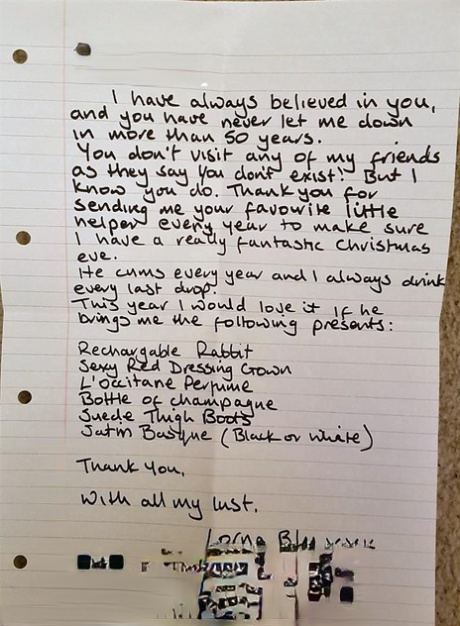 I have always believed in you,
and you have never let me down
in more than 50 years.
You don't visit any of my friends
as they say you don't exist! But I
know you do. Thank you for
sending me your favourite little
helper every year to make sure
I have a really fantastic Christmas
eve.
He cums every year and I always drink
every last drop.
This year I would love it if he
brings me the following presents:
Rechargable Rabbit
Sexy Red Dressing Gown
L'occitane Perfume
Bottle of champagne
Suede Thigh Boots
Satin Basque (Black or White)
Thank you,
With all my lust.
Lorna